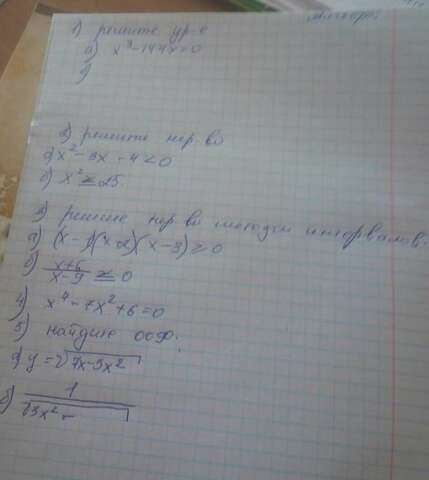 1) решите ур-е
а) x³-144x=0
б)
2) решити нер-во
а) x² - 3x - 4 < 0
б) x² ≥ 25
3) решите нер-во методом интервалов.
а) (x - )(x 2)(x - 3) > 0
б) x+6 / x-9 ≥ 0
4) x⁴ - 7x² + 6 = 0
5) найдите ООФ:
а) y = √7x-3x²
б) 1 / √3x² -